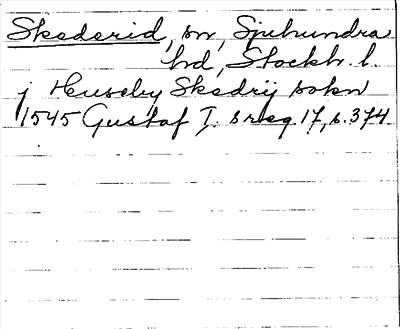 Skederid, sn, Sjuhundra
hd, Stockh. l.
j Huseby Skedrij sokn
1545 Gustaf I. s reg. 17, s. 374.